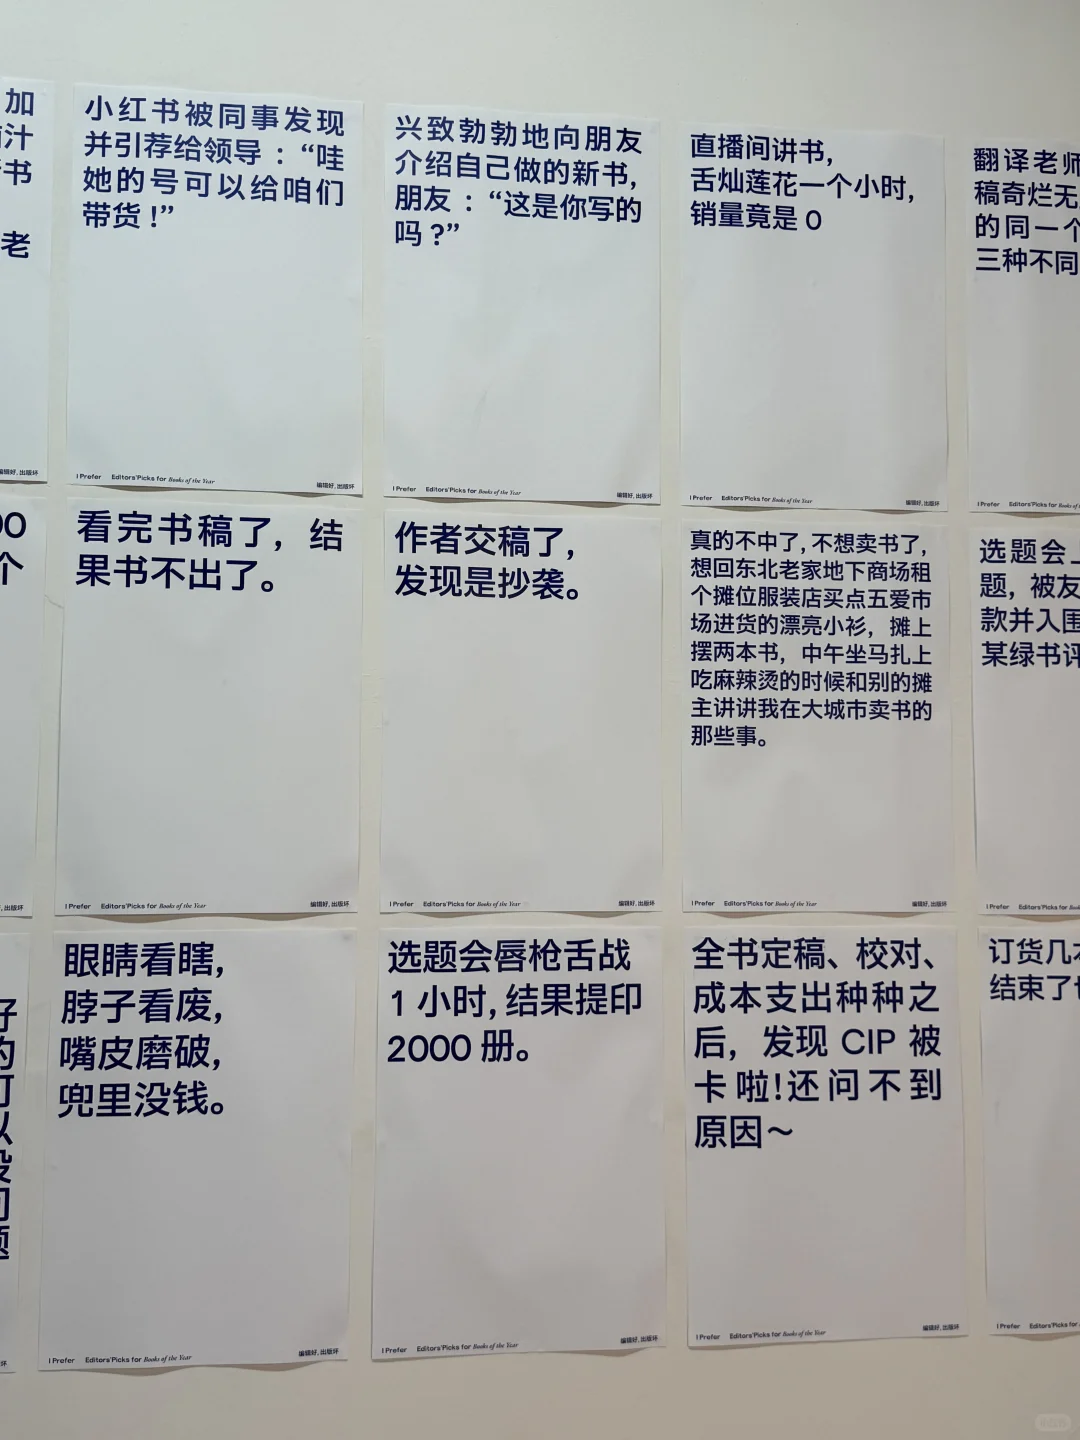 加
汁
书
老
编辑好, 出版坏
小红书被同事发现
并引荐给领导：“哇
她的号可以给咱们
带货!”
I Prefer Editors'Picks for Books of the Year
编辑好, 出版坏
兴致勃勃地向朋友
介绍自己做的新书,
朋友：“这是你写的
吗?”
I Prefer Editors'Picks for Books of the Year
编辑好, 出版坏
直播间讲书,
舌灿莲花一个小时,
销量竟是 0
I Prefer Editors'Picks for Books of the Year
编辑好, 出版坏
翻译老师
稿奇烂无
的同一个
三种不同
I Prefer Editors'Picks for Books of
00
个
, 出版坏
看完书稿了，结
果书不出了。
I Prefer Editors'Picks for Books of the Year
编辑好, 出版坏
作者交稿了,
发现是抄袭。
I Prefer Editors'Picks for Books of the Year
编辑好, 出版坏
真的不中了, 不想卖书了,
想回东北老家地下商场租
个摊位服装店买点五爱市
场进货的漂亮小衫，摊上
摆两本书，中午坐马扎上
吃麻辣烫的时候和别的摊
主讲讲我在大城市卖书的
那些事。
I Prefer Editors'Picks for Books of the Year
编辑好, 出版坏
选题会上
题，被友
款并入围
某绿书评
I Prefer Editors'Picks for
好
的
可
以
没
问
题
坏
眼睛看瞎,
脖子看废,
嘴皮磨破,
兜里没钱。
I Prefer Editors'Picks for Books of the Year
编辑好, 出版坏
选题会唇枪舌战
1 小时, 结果提印
2000 册。
I Prefer Editors'Picks for Books of the Year
编辑好, 出版坏
全书定稿、校对、
成本支出种种之
后，发现 CIP 被
卡啦!还问不到
原因～
I Prefer Editors'Picks for Books of the Year
编辑好, 出版坏
订货几
结束了
I Prefer Editors'Picks for